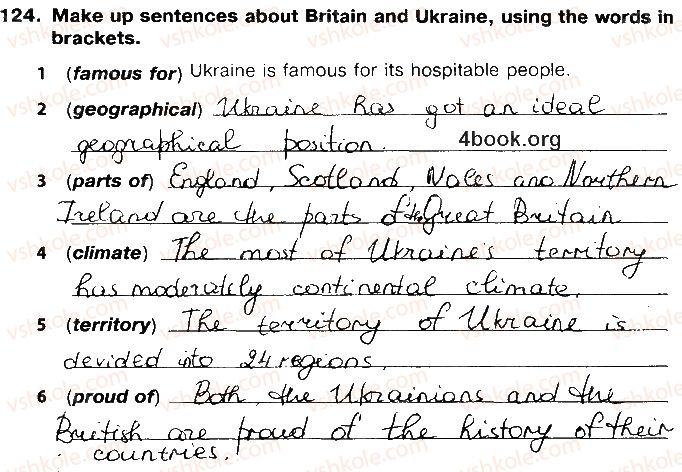 124. Make up sentences about Britain and Ukraine, using the words in
brackets.
1 (famous for) Ukraine is famous for its hospitable people.
2 (geographical) Ukraine has got an ideal
geographical position.
4book.org
3 (parts of) England, Scotland, Wales and Northern
Ireland are the parts of the Great Britain
4 (climate) The most of Ukraine's territory
has moderately continental climate.
5 (territory) The territory of Ukraine is
devided into 24 regions.
6 (proud of) Both, the Ukrainians and the
British are proud of the history of their
countries.
vshkole.com